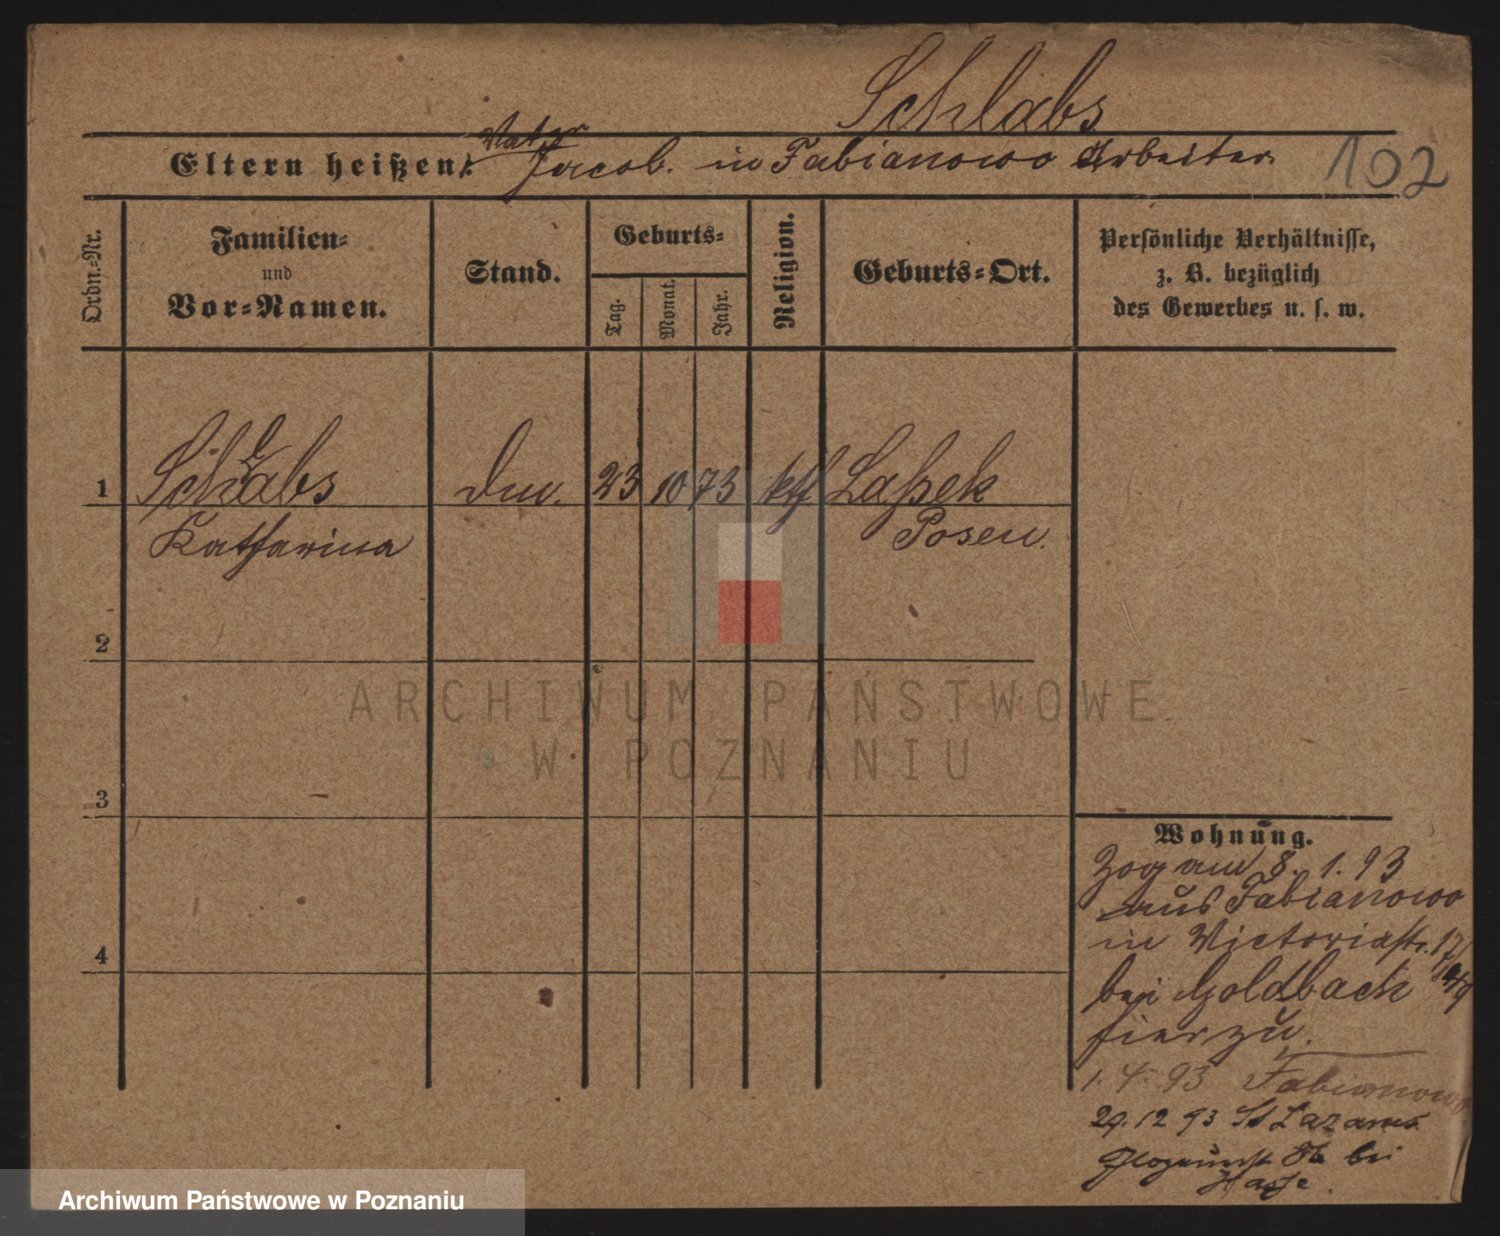 Schlabs
Vater
Eltern heißen: Jacob. in Fabianowo Arbeiter.
102
Ordn.=Nr.
Familien=
und
Vor=Namen.
Stand.
Geburts=
Tag.
Monat.
Jahr.
Religion.
Geburts=Ort.
Persönliche Verhältnisse,
z. B. bezüglich
des Gewerbes u. s. w.
1 Schlabs 23 10 73 kth Laßek
Katharina Posen.
2
3
4
Wohnung.
Zog am 8. 1. 93
aus Fabianowo
in Victoriastr. 17/
bei Goldbach
hier zu.
1. 4. 93 Fabianowo
29. 12 93 St Lazarus
bei
Hasse.
ARCHIWUM PAŃSTWOWE
W POZNANIU
Archiwum Państwowe w Poznaniu